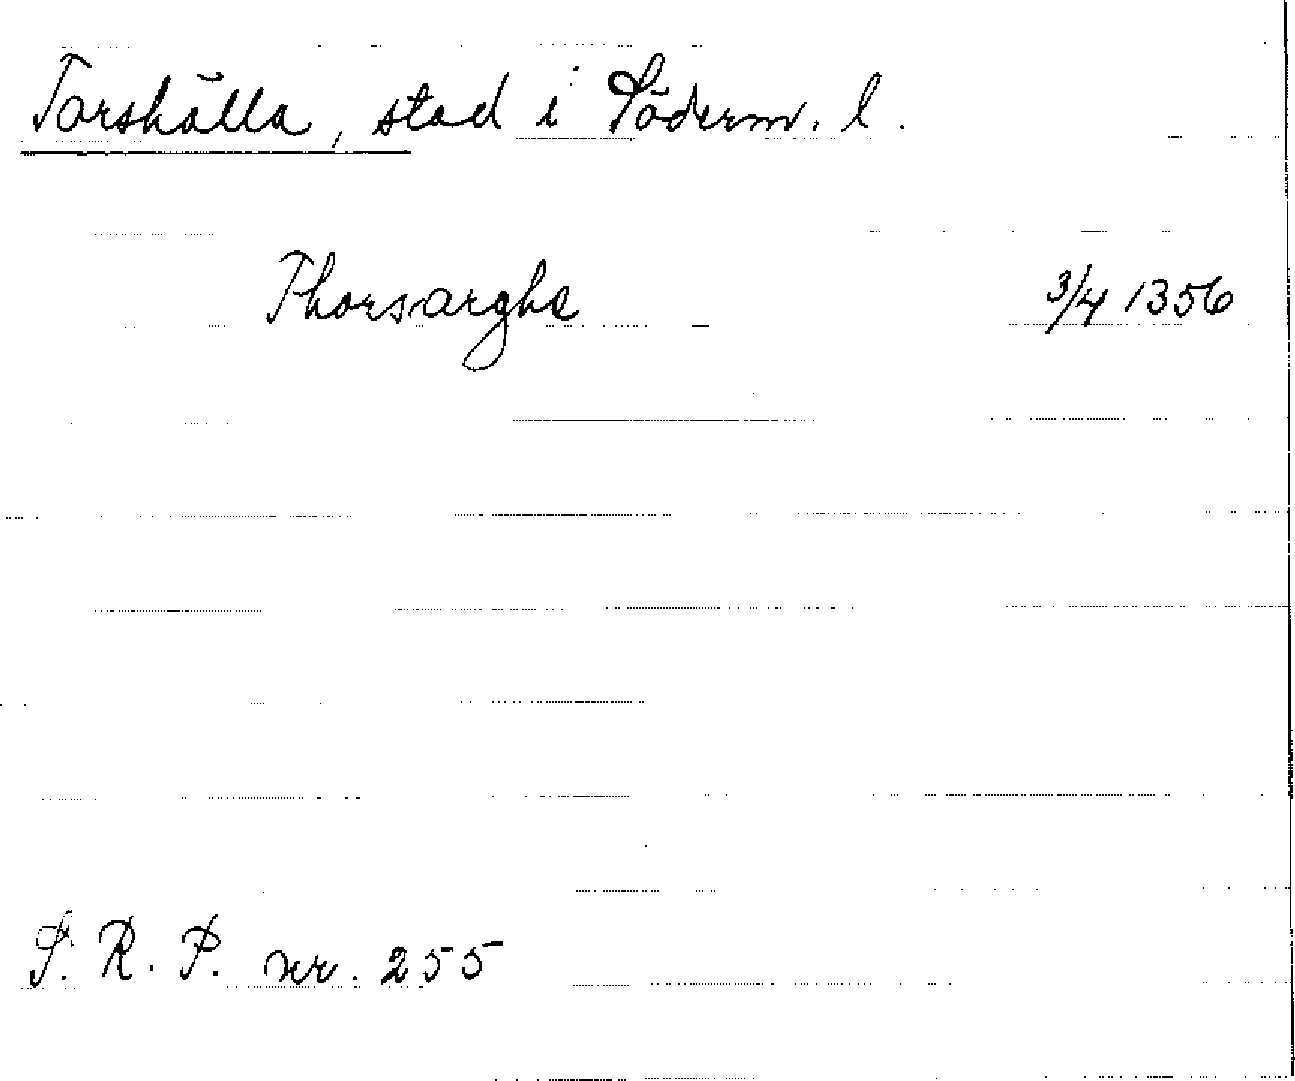 Torshälla, stad i Söderm. l.
Thorsarghe 3/4 1356
S. R. P. nr. 255